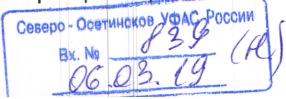 Северо - Осетинское УФАС России
Вх. № 839 (н)
06.03.19